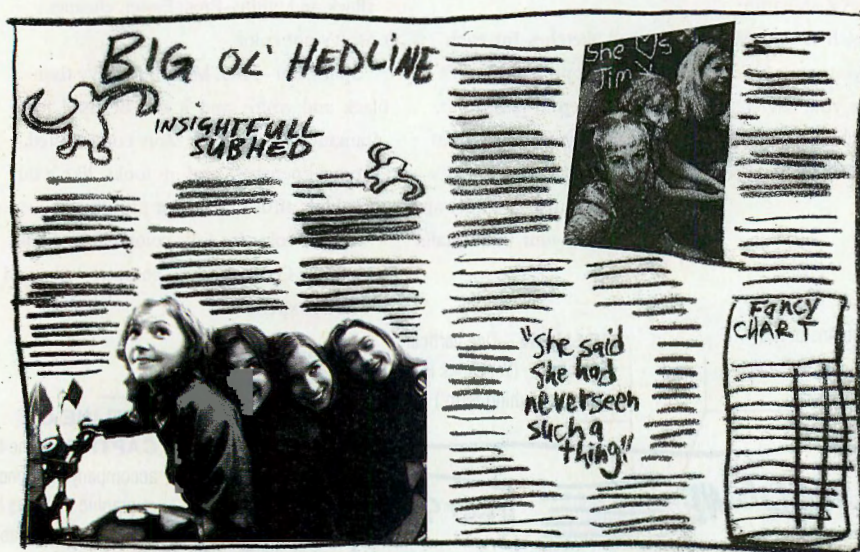 BIG OL' HEDLINE
INSIGHTFULL
SUBHED
She ♡s
Jim
"She said
she had
never seen
such a
thing"
Fancy
CHART